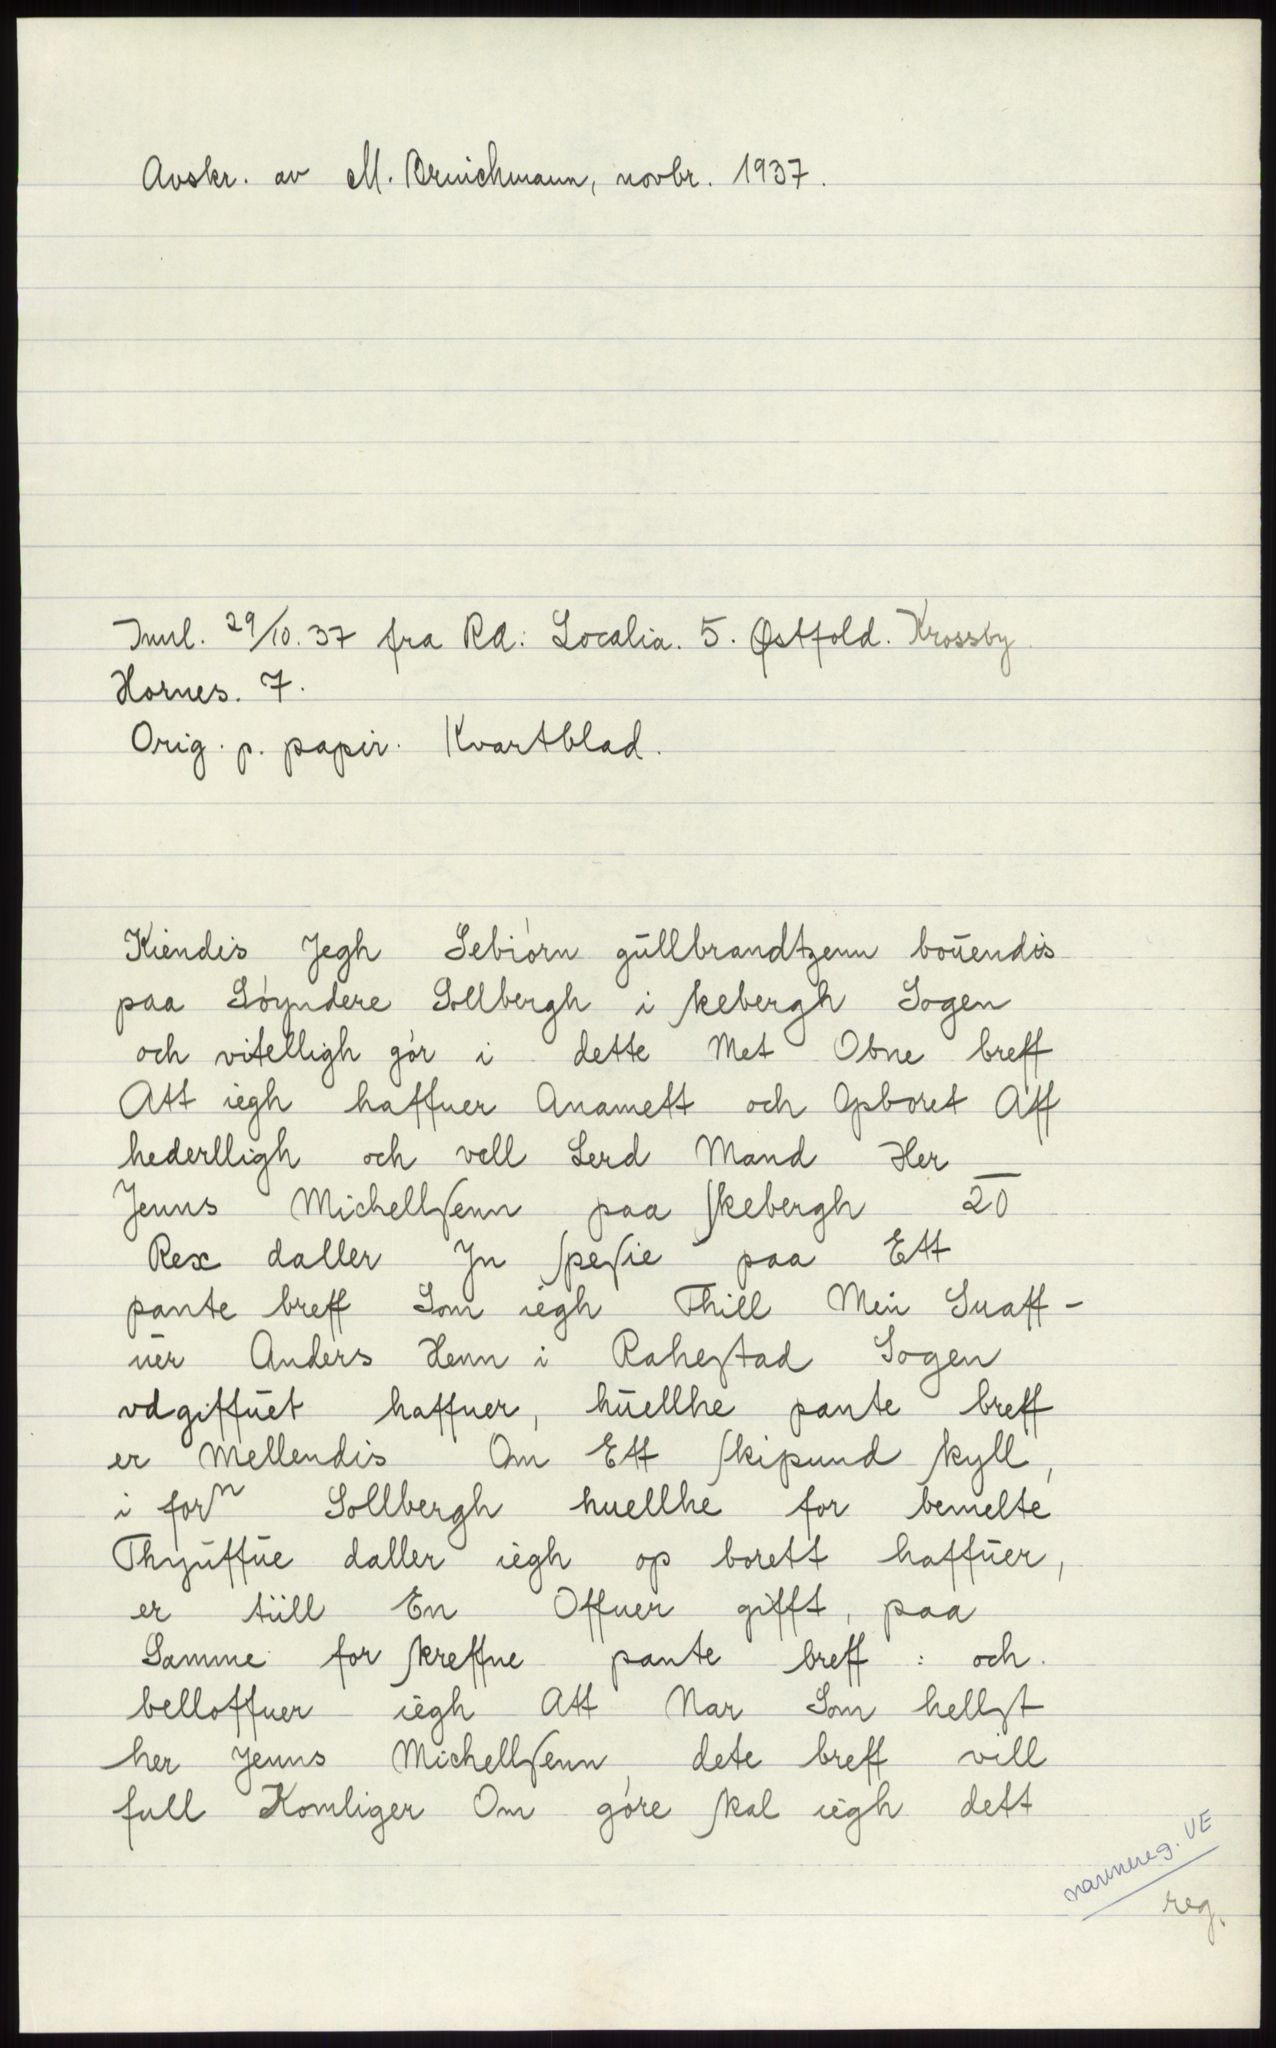 Avskr. av M. Brinchmann, novbr. 1937.
Innl. 29/10.37 fra RA: Localia. 5. Østfold. Krossby
Hornes. 7.
Orig. p. papir. Kvartblad.
Kiendis Jegh Sebiórn gŭllbrandtzenn boŭendis
paa Sóyndere Sollbergh i skebergh Sogen
och vitelligh gór i dette Met Obne breff
Att iegh haffuer Anamett och Opboret Aff
hederlligh och vell Lerd Mand Her
Jenns Michellsenn paa skebergh 20
Rex daller Jn spesie paa Ett
pante breff Som iegh Thill Min Suaff-
ŭer Anders Henn i Rahestad Sogen
vdgiffŭet haffuer, hŭellhe pante breff
er Mellendis Om Ett skipund skyll,
i forn Sollbergh huellhe for bemelte
Thyŭffŭe daller iegh op borett haffŭer,
er tiill En Offuer gifft, paa
Samme for skreffne pante breff : och
belloffuer iegh Att Nar Som hellst
her Jenns Michellsenn, dete breff vill
full Komliger Om góre skal iegh dett
navnereg. VE
reg.